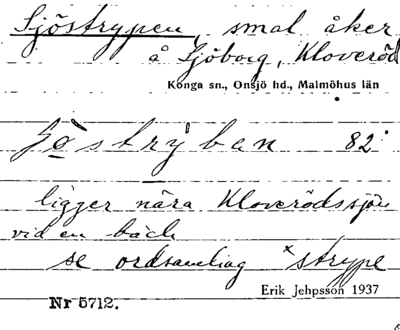 Sjöstrypen, smal åker
å Sjöborg, Kloveröd
Konga sn., Onsjö hd., Malmöhus län
82
ligger nära Kloverödssjön
vid en bäck
se ordsamling ˣstrype
Erik Jehpsson 1937
Nr 5712.